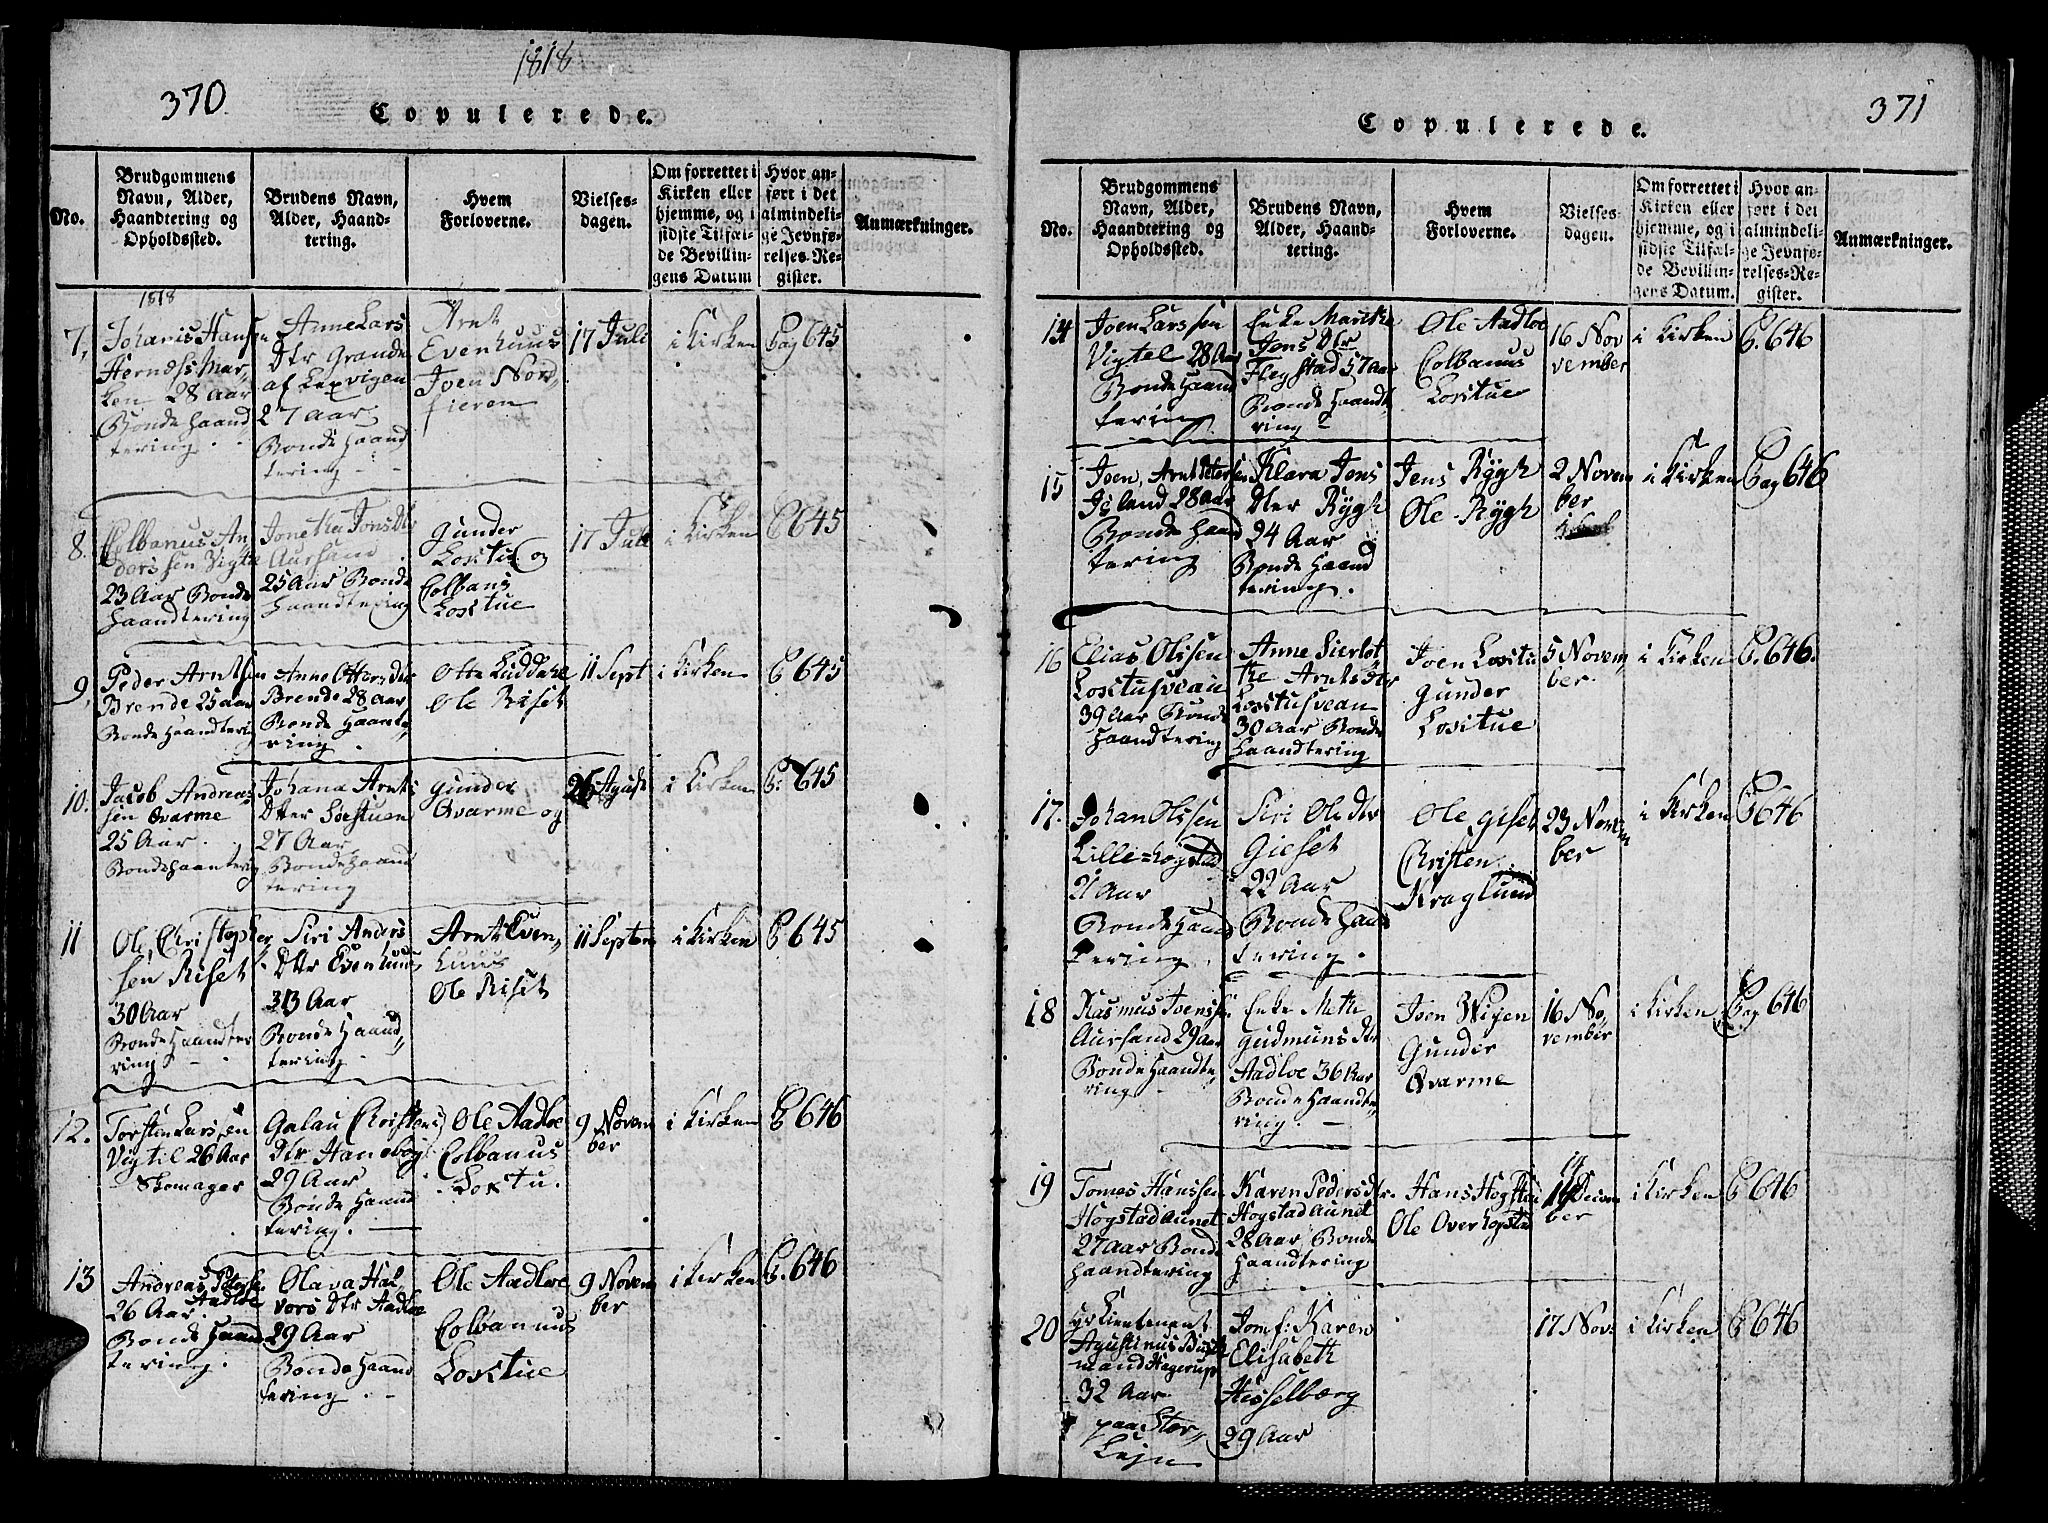 1818
370.
Copulerede.
No.
Brudgommens
Navn, Alder,
Haandtering og
Opholdssted.
Brudens Navn,
Alder, Haand-
tering.
Hvem
Forloverne.
Vielses-
dagen.
Om forrettet i
Kirken eller
hjemme, og i
sidste Tilfæl-
de Bevillin-
gens Datum
Hvor an-
ført i det
almindeli-
ge Jevnfø-
relses-Re-
gister.
Anmærkninger.
1818
7,
Johanis Hansen
Herndls Mar-
ken 28 aar
Bonde Haand
tering.
Anne Lars
Dtr Grande
af Lexvigen
27 aar
Bonde Haand
tering
Arnt
Evenhuus
Joen Nord,
fieren
17 Juli
i Kirken
Pag 645
8.
Colbanus An
derssen Vigtel
23 Aar Bonde
Haandtering
Jonetha Jons Dtr
Aursand
25 Aar Bonde
Haandtering
Gunder
Loxitue og
Colbans
Loxitue
17 Juli
i Kirken
P 645
9,
Peder Arntsen
Brende 25 aar
Bonde Haandtering
Anne Otters Dtr
Brende 28 aar
Bonde Haante,
ring
Otte
Ole Riset
11 Sept
i Kirken
P 645
10.
Jacob Andreas
sen Qvarme
25 Aar.
Bondehaantering
Johana Arnts
Dtter Loxtuen
27 Aar
Bonde Haand
tering
Gunder
Qvarme og
26 Agust
i Kirken
P. 645
11
Ole Christopher,
sen Riset
30 Aar
Bonde Haandte
ring
Siri Anders
Dttr Evenhuus
33 Aar
Bonde Haand,
tering
Arnt Even,
huus
Ole Risit
11 Septem
i Kirken
P 645
12.
Torsten Larssen
Vigtil 26 Aar
Skomager
Galau Christens
Dtr Hanebøg
29 Aar
Bonde Haand
tering.
Ole Aadloe
Colbanus
Loxtu.
9 Novem
ber
i Kirken
P 646
13
Andreas Peterse
Aadloe
26 Aar
Bonde Haand
tering.
Olava Hal
vors Dtr Aadloe
29 Aar
Bonde Haand
tering.
Ole Aadloe
Colbanus
Loxitue
9 Novem
ber
i Kirken
P. 646
371
Copulerede.
No.
Brudgommens
Navn, Alder,
Haandtering og
Opholdssted.
Brudens Navn,
Alder, Haand-
tering.
Hvem
Forloverne.
Vielses-
dagen.
Om forrettet i
Kirken eller
hjemme, og i
sidste Tilfæl-
de Bevillin-
gens Datum.
Hvor an-
ført i det
almindeli-
ge Jevnfø-
relses-Re-
gister.
Anmærkninger.
14
Joen Larssen
Vigtel 28 Aar
Bonde Haand
tering
Enke Marithe
Jons Dtr
Flegstad 57 aar
Bonde Haandt
ring
Ole Aadloe
Colbanus
Loxitue
16 Nov
vember
i Kirken
P. 646
15
Joen Arnt Petersen
Island 28 Aar
Bonde Haand
tering
Klara Jens
Dter Rygh
24 Aar
Bonde Haand
tering.
Jens Rygh
Ole Rygh
2 Novem
ber
i Kirken
Pag 646
16
Elias Olssen
Loxtusveau
39 Aar Bonde
Haandtering
Anne Sierlot
the Arntsdtr
Loxtusvean
30 Aar Bonde
Haandtering
Joen Loxitu
Gunder
Loxitue
5 Novem,
ber.
i Kirken
P. 646.
17.
Johan Olssen
Lille=hogstad
21 Aar
Bonde Haand
tering
Siri Ole dtr
Gieset
22 Aar
Bonde Haand
tering.
Ole Giset
Christen
Kraglund
23 Novem
ber
i Kirken
P 646
18
Rasmus Joenssen
Aursand 29 aar
Bonde Haandte,
ring
Enke Meth
Gudmuns Dtr
Aadloe 36 Aar
Bonde Haandte,
ring.
Joen Wigen
Gunder
Qvarme
16 No,
vember
i Kirken
Pag 646
19
Tomes Hanssen
Hogstadaunet
27 aar Bond
haandtering
Karen Peders dtr.
Hogstadaunet
28 Aar, Bonde
Haandtering
Hans Hogstad
Ole Overhogstad
14 Decem
ber
i Kirken
P 646
20
Hr Lieutenant
Agustinus
mand Hagerup
32 Aar
paa Stør,
Lejn
Jomf: Karen
Elisabeth
Hisselberg
29 Aar
17 Nov:
i Kirken
P 646